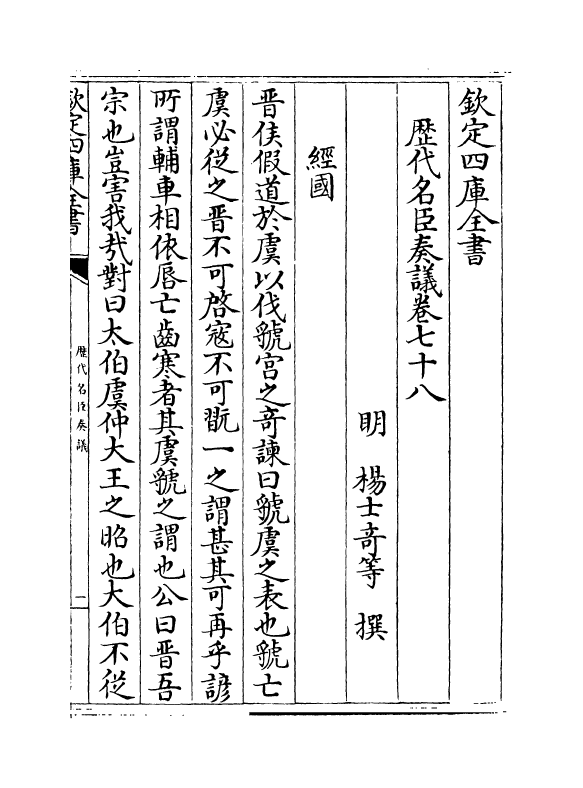 欽定四庫全書
歴代名臣奏議卷七十八
明　楊士竒等　撰
經國
晋侯假道於虞以伐虢宫之竒諫曰虢虞之表也虢亡
虞必從之晋不可啓寇不可翫一之謂甚其可再乎諺
所謂輔車相依唇亡齒寒者其虞虢之謂也公曰晋吾
宗也豈害我㢤對曰太伯虞仲大王之昭也大伯不從
欽定四庫全書
歴代名臣奏議
一